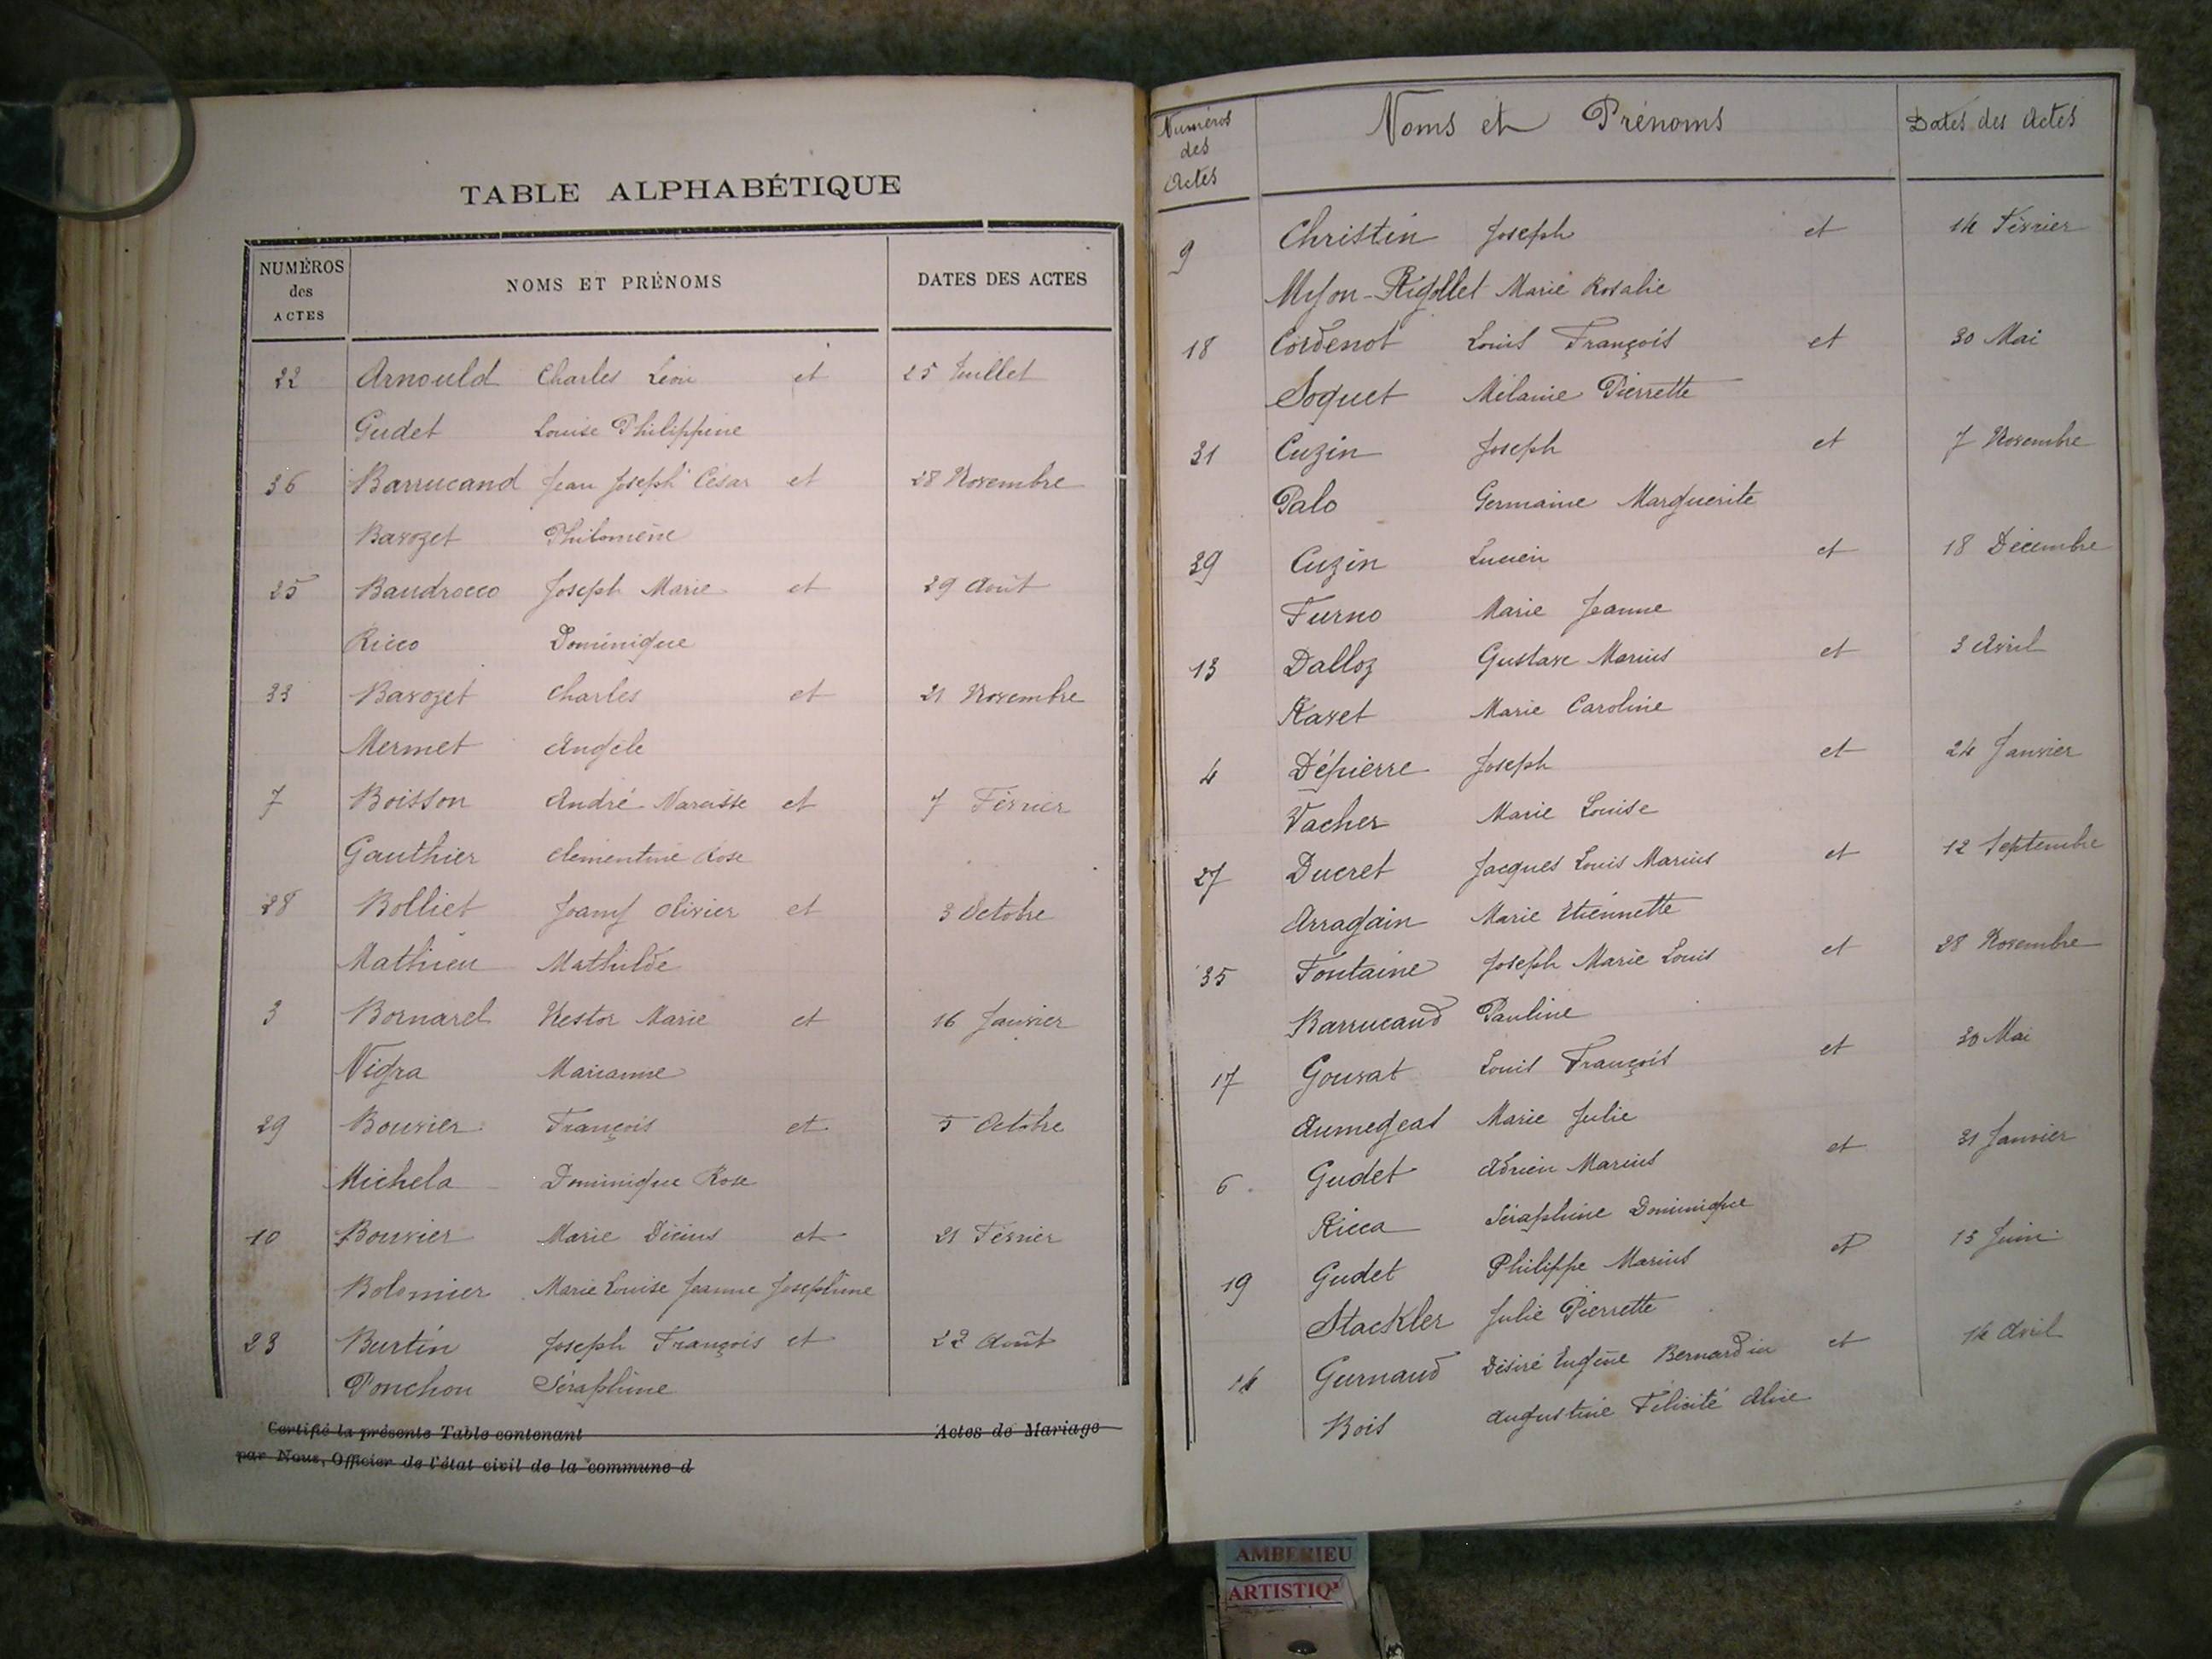 TABLE ALPHABÉTIQUE
NUMÉROS des ACTES NOMS ET PRÉNOMS DATES DES ACTES
22 Arnould Charles Léon et 25 Juillet
Gudet Louise Philippine
36 Barrucand Jean Joseph César et 28 Novembre
Bavozet Philomène
25 Baudrocco Joseph Marie et 29 Août
Ricco Dominique
33 Bavozet Charles et 21 Novembre
Mermet Angèle
7 Boisson André Narcisse et 7 Février
Gauthier Clémentine Rose
28 Bolliet Joanny Olivier et 3 Octobre
Mathieu Mathilde
3 Bornarel Nestor Marie et 16 Janvier
Nigra Marianne
29 Bouvier François et 5 Octobre
Michela Dominique Rose
10 Bouvier Marie Décius et 21 Février
Bolomier Marie Louise Jeanne Joséphine
23 Burtin Joseph François et 22 Août
Ponchon Séraphine
Certifié la présente Table contenant Actes de Mariage
par Nous, Officier de l'état civil de la commune d
Numéros des Actes Noms et Prénoms Dates des Actes
9 Christin Joseph et 14 Février
Rigollet Marie Rosalie
18 Cordenot Louis François et 30 Mai
Soquet Mélanie Pierrette
31 Cuzin Joseph et 7 Novembre
Palo Germaine Marguerite
39 Cuzin Lucien et 18 Décembre
Furno Marie Jeanne
13 Dalloz Gustave Marius et 3 Avril
Ravet Marie Caroline
4 Dépierre Joseph et 24 Janvier
Vacher Marie Louise
27 Ducret Jacques Louis Marius et 12 Septembre
Arragain Marie Etiennette
35 Fontaine Joseph Marie Louis et 28 Novembre
Barrucand Pauline
17 Gouvat Louis François et 30 Mai
Aumegeas Marie Julie
6 Gudet Adrien Marius et 31 Janvier
Ricca Séraphine Dominique
19 Gudet Philippe Marius et 15 Juin
Stackler Julie Pierrette
Gurnaud Désiré Eugène Bernardin et 14 Avril
Bois Augustine Félicité Alice
AMBERIEU
ARTISTIQ